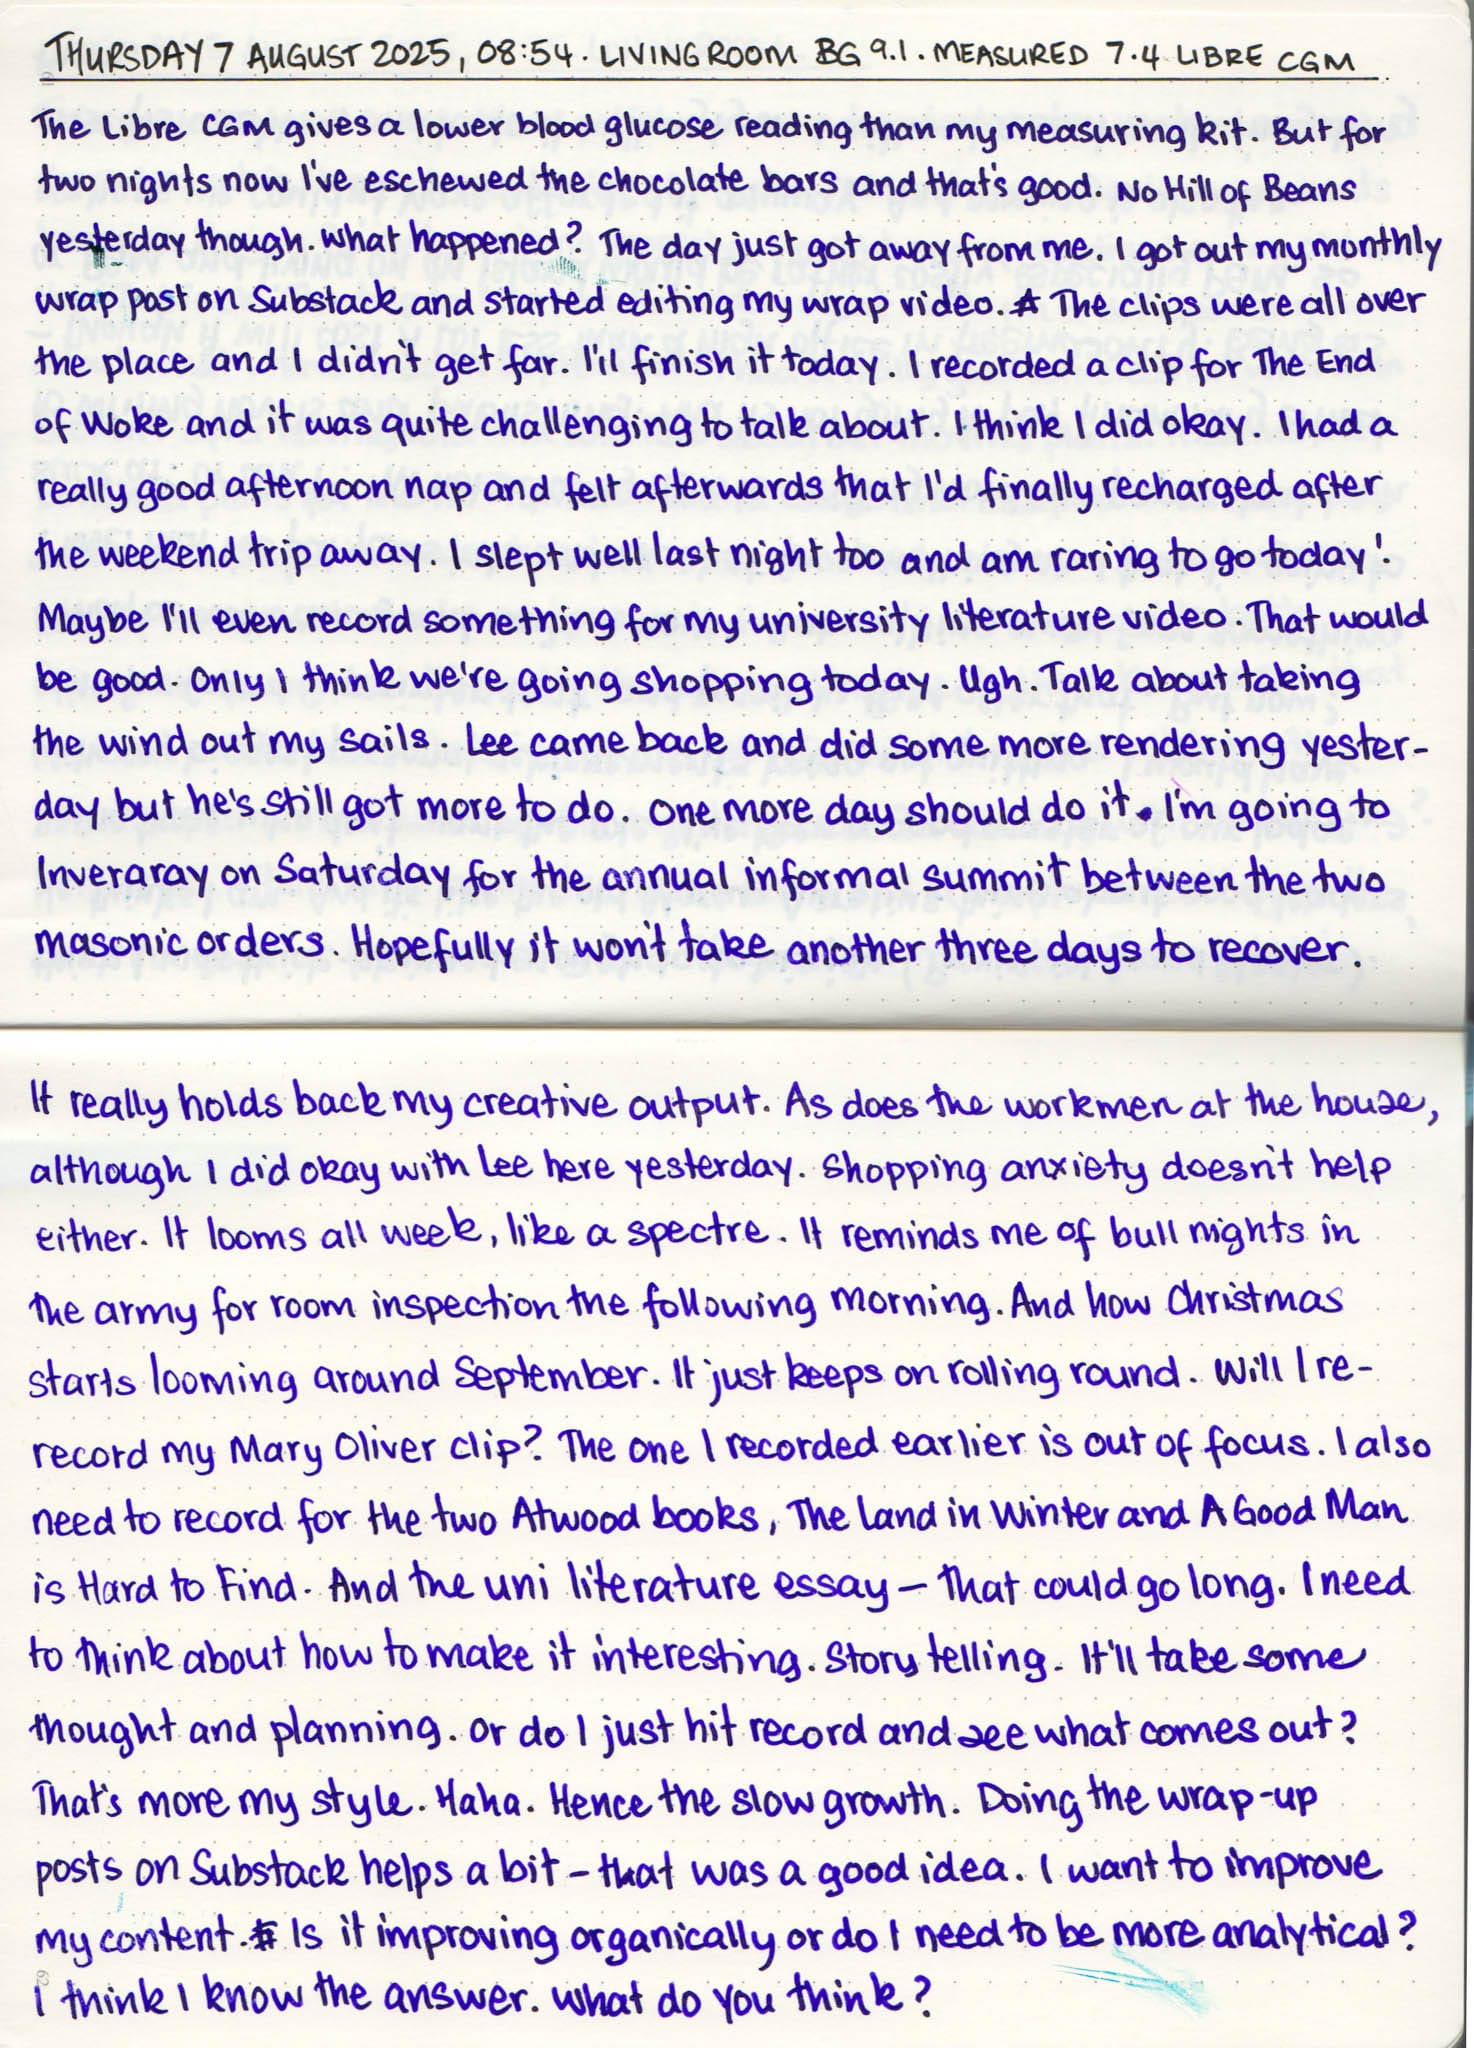 THURSDAY 7 AUGUST 2025, 08:54. LIVING ROOM BG 9.1. MEASURED 7.4 LIBRE CGM
The Libre CGM gives a lower blood glucose reading than my measuring kit. But for
two nights now I've eschewed the chocolate bars and that's good. No Hill of Beans
yesterday though. What happened? The day just got away from me. I got out my monthly
wrap post on Substack and started editing my wrap video. The clips were all over
the place and I didn't get far. I'll finish it today. I recorded a clip for The End
of Woke and it was quite challenging to talk about. I think I did okay. I had a
really good afternoon nap and felt afterwards that I'd finally recharged after
the weekend trip away. I slept well last night too and am raring to go today!
Maybe I'll even record something for my university literature video. That would
be good. Only I think we're going shopping today. Ugh. Talk about taking
the wind out my sails. Lee came back and did some more rendering yester-
day but he's still got more to do. One more day should do it. I'm going to
Inveraray on Saturday for the annual informal summit between the two
masonic orders. Hopefully it won't take another three days to recover.
It really holds back my creative output. As does the workmen at the house,
although I did okay with Lee here yesterday. Shopping anxiety doesn't help
either. It looms all week, like a spectre. It reminds me of bull nights in
the army for room inspection the following morning. And how Christmas
starts looming around September. It just keeps on rolling round. Will I re-
record my Mary Oliver clip? The one I recorded earlier is out of focus. I also
need to record for the two Atwood books, The Land in Winter and A Good Man
is Hard to Find. And the uni literature essay – that could go long. I need
to think about how to make it interesting. Story telling. It'll take some
thought and planning. Or do I just hit record and see what comes out?
That's more my style. Haha. Hence the slow growth. Doing the wrap-up
posts on Substack helps a bit – that was a good idea. I want to improve
my content. Is it improving organically or do I need to be more analytical?
I think I know the answer. What do you think?